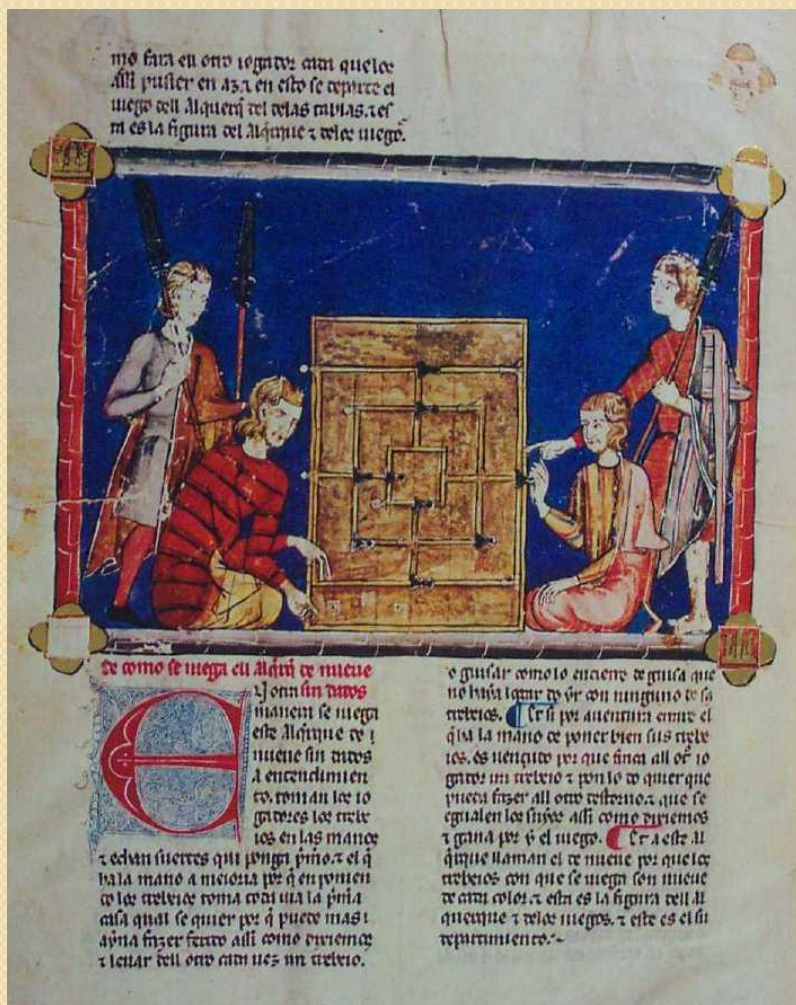 mo fara en otro iogador cada que los
assi pusier en az. & en esto se departe el
iuego dell Alquerq̃ del delas tablas. & es
ta es la figura del Alq̃rque & delos iuegos.
de como se iuega ell alq̃rq̃ de nueue
sin dados
manera se iuega
este Alq̃rque de
nueue sin dados
a entendimien
to. toman los io
gadores los trebe
ios en las manos
& echan suertes qui ponga p̃mo. & el q̃
ha la mano a meioria por q̃ en ponien
do los trebeios toma toda uia la p̃ma
casa qual se quier por q̃ puede mas
ayna fazer assi como diremos
& leuar dell otro cada uez un trebeio.
o guisar como lo encierre de guisa que
no haya logar do yr con ninguno de sa
trebeios. Et si por auentura entre el
q̃ ha la mano de poner bien sus trebe
ios. es uençudo por que finca all ot̃ io
gador un trebeio & pon lo do quier que
pueda fazer all otro destorno. & que se
egualen los suyos assi como diriemos
& gana por y el iuego. Et a este al
q̃rque llaman el de nueue por que los
trebeios con que se iuega son nueue
de cada color. & esta es la figura dell al
querque & delos iuegos. & este es el su
departimiento.